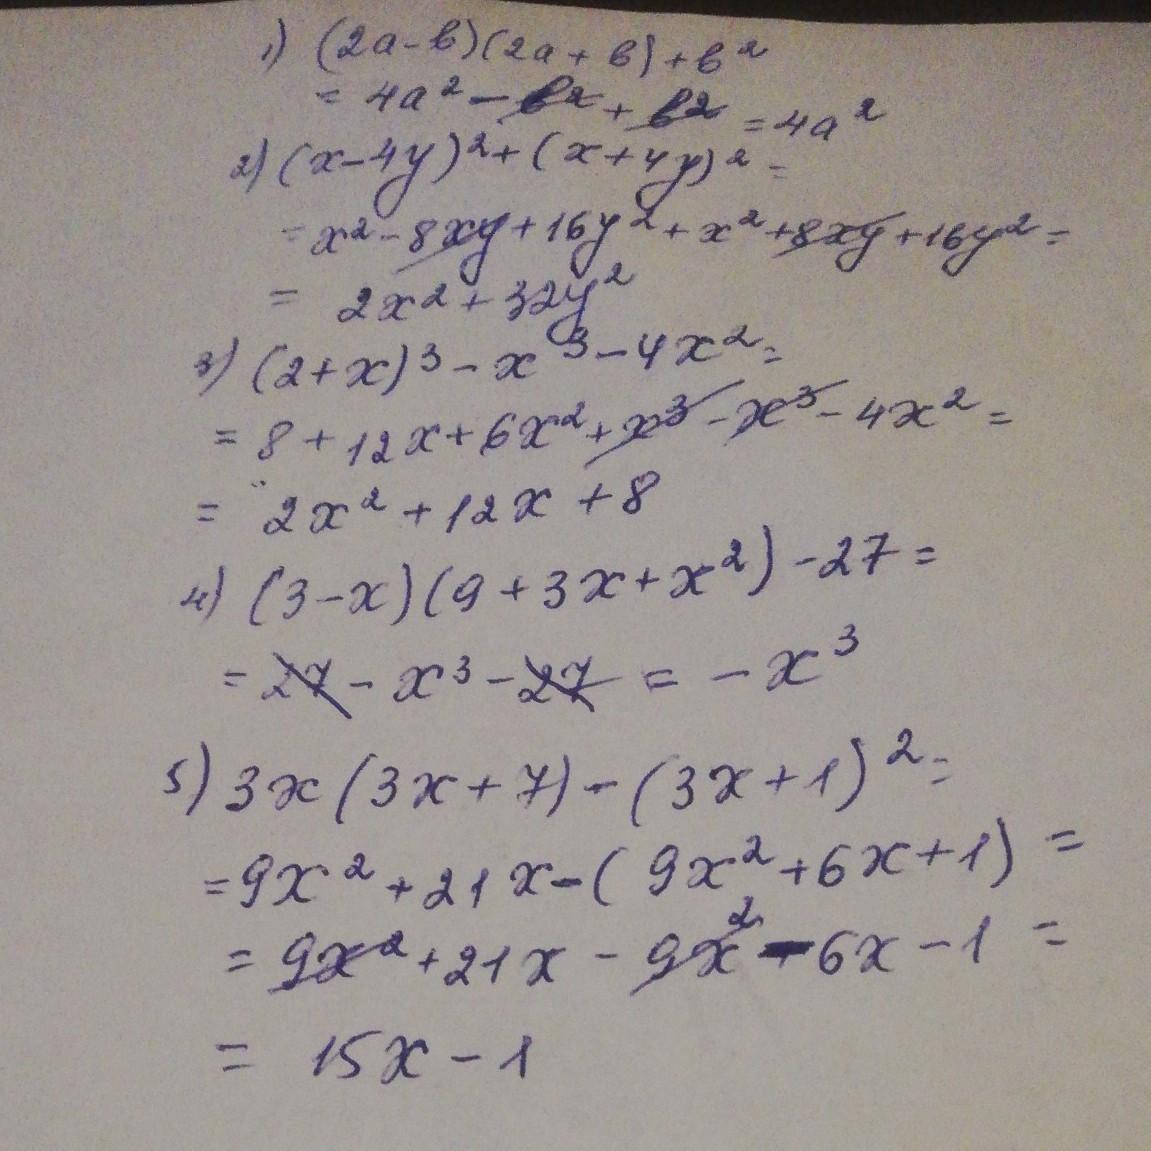 1) (2a-b)(2a+b)+b²
= 4a² - b² + b² = 4a²
2) (x-4y)²+(x+4y)² =
= x² - 8xy + 16y² + x² + 8xy + 16y² =
= 2x² + 32y²
3) (2+x)³ - x³ - 4x² =
= 8 + 12x + 6x² + x³ - x³ - 4x² =
= 2x² + 12x + 8
4) (3-x)(9+3x+x²) - 27 =
= 27 - x³ - 27 = -x³
5) 3x(3x+7) - (3x+1)² =
= 9x² + 21x - (9x² + 6x + 1) =
= 9x² + 21x - 9x² - 6x - 1 =
= 15x - 1